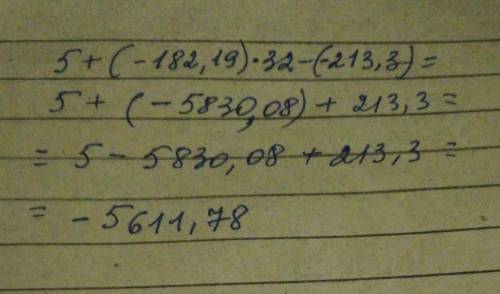 5+(-182,19)·32-(-213,3)=
5+(-5830,08)+213,3=
=5-5830,08+213,3=
=-5611,78